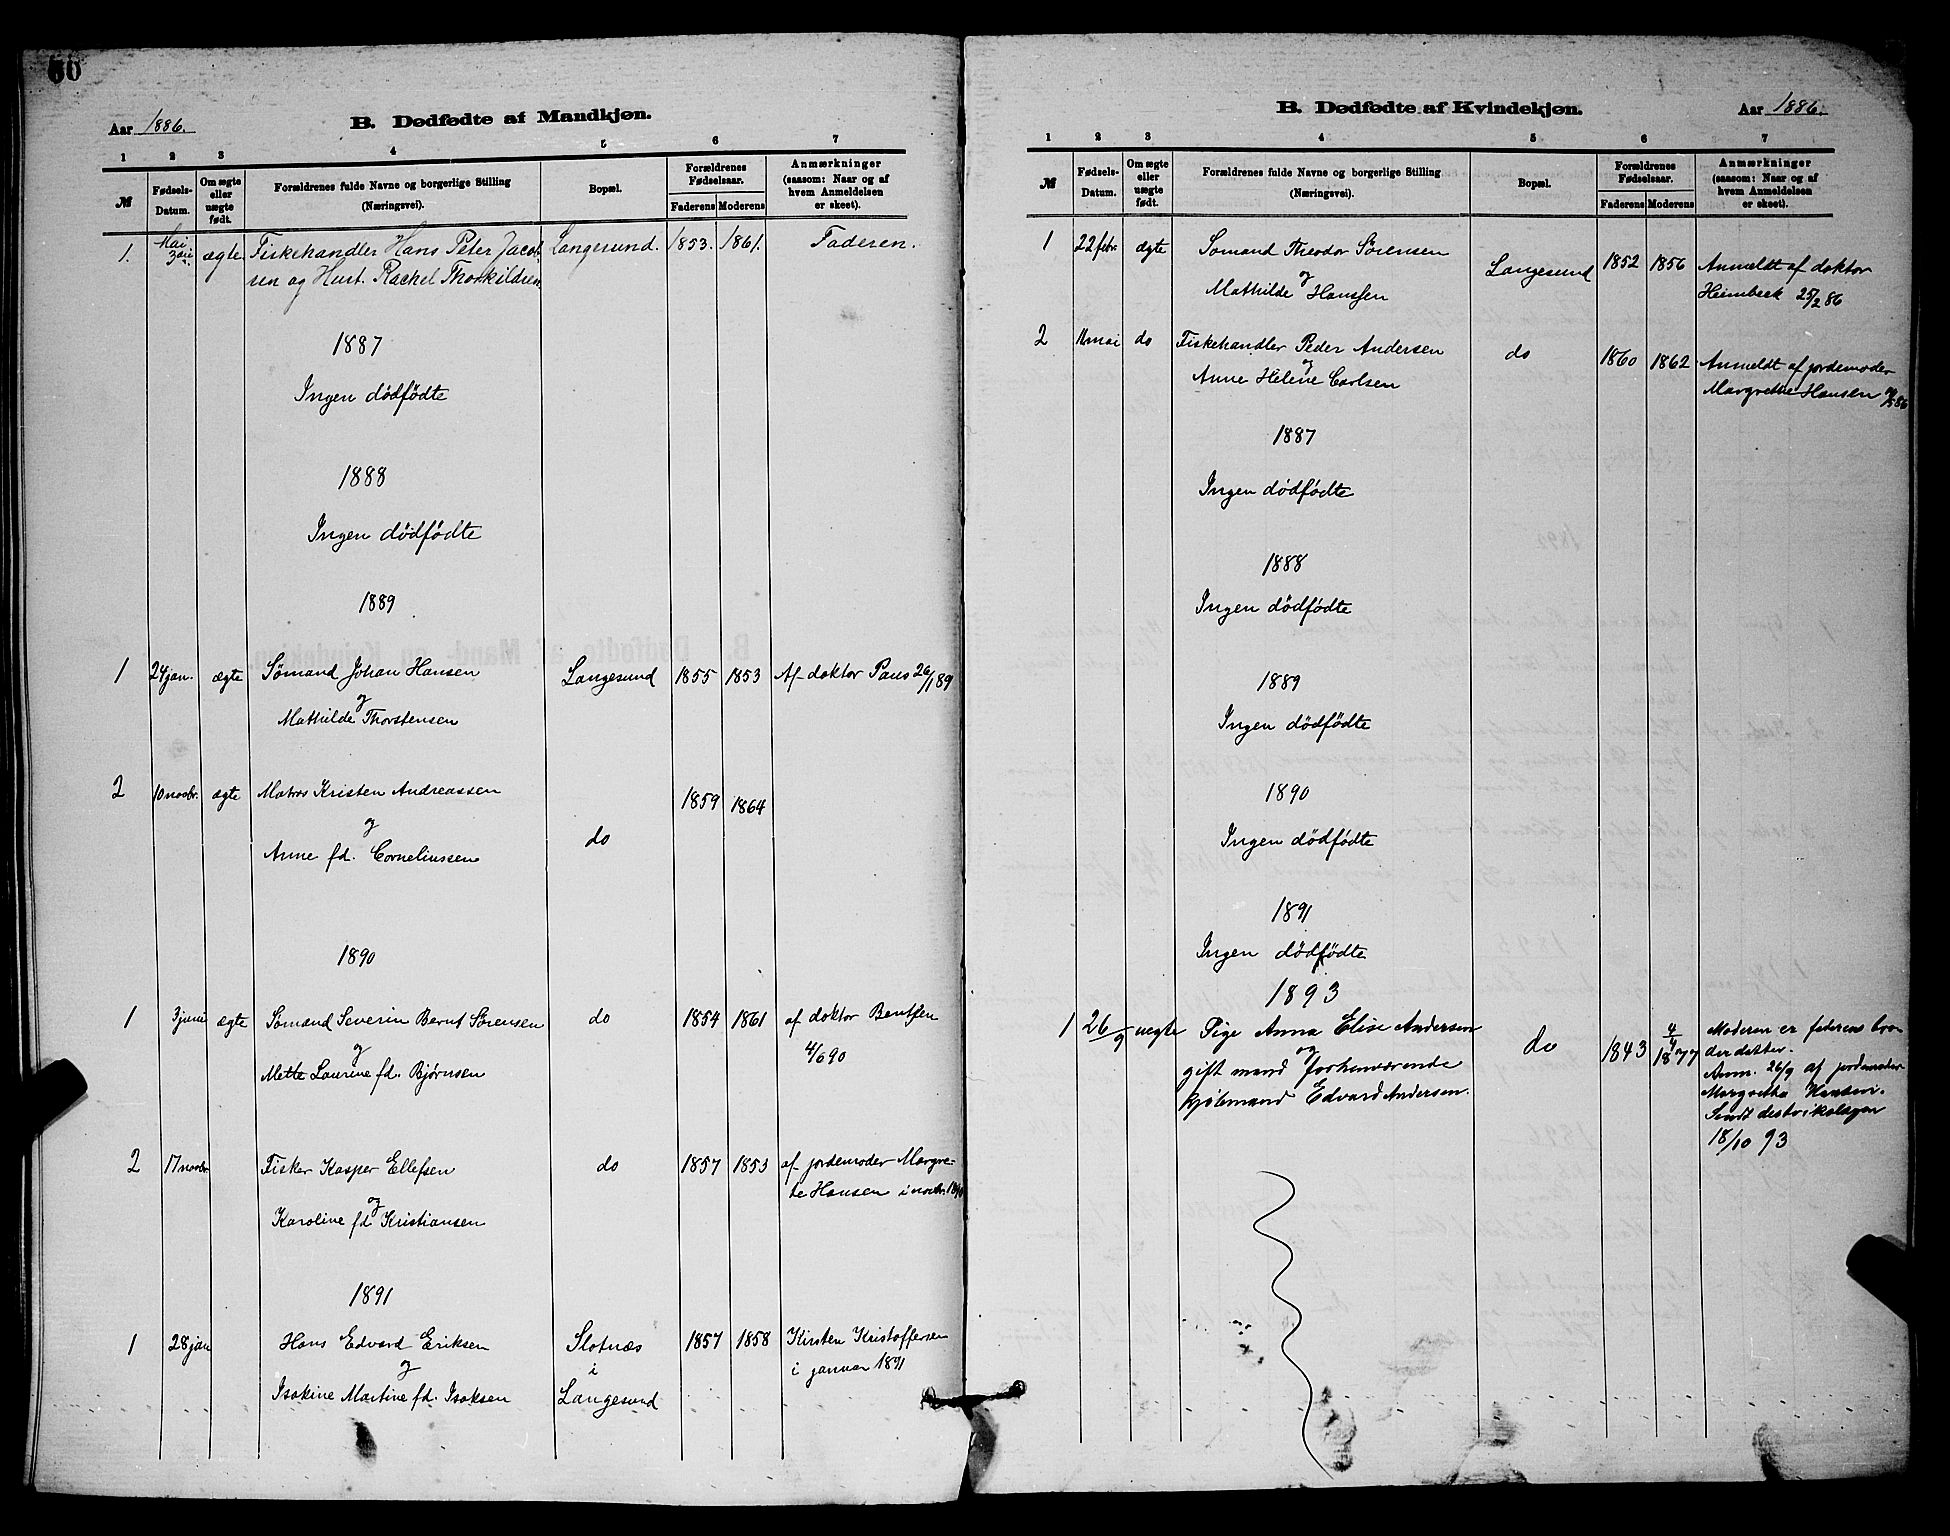 60
Aar 1886.
B. Dødfødte af Mandkjøn.
1 2 3 4 5 6 7
№
Fødsels-Datum.
Om ægte eller uægte født.
Forældrenes fulde Navne og borgerlige Stilling
(Næringsvei).
Bopæl.
Forældrenes Fødselsaar.
Faderens Moderens
Anmærkninger
(saasom: Naar og af
hvem Anmeldelsen
er skeet).
1. Mai ægte Fiskehandler Hans Peter Jacob- Langesund. 1853. 1861. Faderen.
sen og Hust. Rachel Thorkildsen
1887
Ingen dödfödte
1888
Ingen dödfödte
1889
1 24 jan. ægte Sømand Johan Hansen Langesund 1855 1853 Af doktor Paus 26/1 89
og
Mathilde Thorstensen
2 10 novbr. ægte Matros Kristen Andreassen 1859 1864
og
do
Anne fd. Corneliussen
1890
1 3 juni ægte Sømand Severin Bernt Sørensen do 1854 1861 af doktor Bentsen
og 4/6 90
Mette Laurine fd. Bjørnsen
2 17 novbr Fisker Kasper Ellefsen do 1857 1853 af jordemoder Margre-
og te Hansen i novbr. 1890
Karoline fd Kristiansen
1891
1 28 jan Hans Edvard Eriksen Slotnæs 1857 1858 Kirsten Kristoffersen
og i i januar 1891
Isakine Martine fd. Isaksen Langesund
B. Dødfødte af Kvindekjøn.
Aar 1886.
1 2 3 4 5 6 7
№
Fødsels-Datum.
Om ægte eller uægte født.
Forældrenes fulde Navne og borgerlige Stilling
(Næringsvei).
Bopæl.
Forældrenes Fødselsaar.
Faderens Moderens
Anmærkninger
(saasom: Naar og af
hvem Anmeldelsen
er skeet).
1 22 febr. ægte Sømand Theodor Sörensen Langesund 1852 1856 Anmeldt af doktor
og
Mathilde Hanssen Heimbeck 25/2 86
2 11 mai do Fiskehandler Peder Andersen do 1860 1862 Anmeldt af jordemoder
og
Anne Helene Carlsen Margrethe Hansen 86
1887
Ingen dödfödte
1888
Ingen dödfödte
1889
Ingen dödfödte
1890
Ingen dödfödte
1891
Ingen dödfödte
1893
1 26/9 uægte Pige Anna Elise Andersen do 1843 4/4 1877 Moderen er faderens bro-
og
gift mand forhenværende derdatter.
kjöbmand Edvard Andersen. Anm. 26/9 af jordemoder
Margretha Hansen.
Sendt distriktslægen
18/10 93